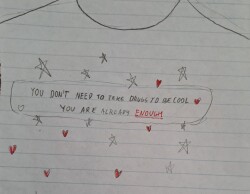 YOU DON'T NEED TO TAKE DRUGS TO BE COOL
YOU ARE ALREADY ENOUGH